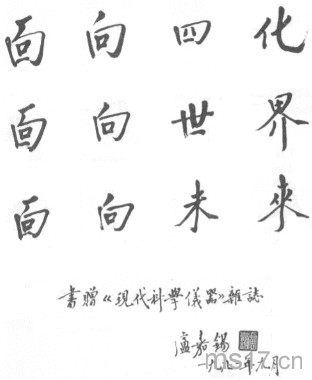 面向四化
面向世界
面向未來
書贈《現代科學儀器》雜誌
盧嘉錫
一九九〇年九月
ms17.cn